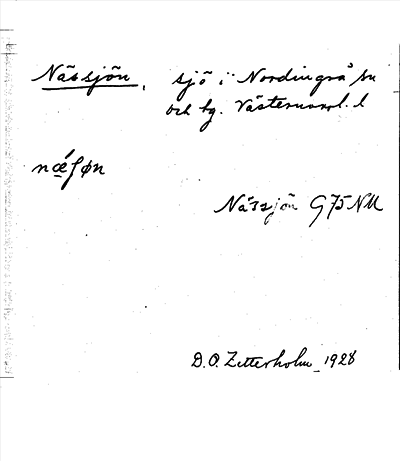 Nässjön, sjö i Nordingrå sn
och hg. Västernorrl. l
næ´ʃøn
Nässjön G75NU
D.O. Zetterholm 1928